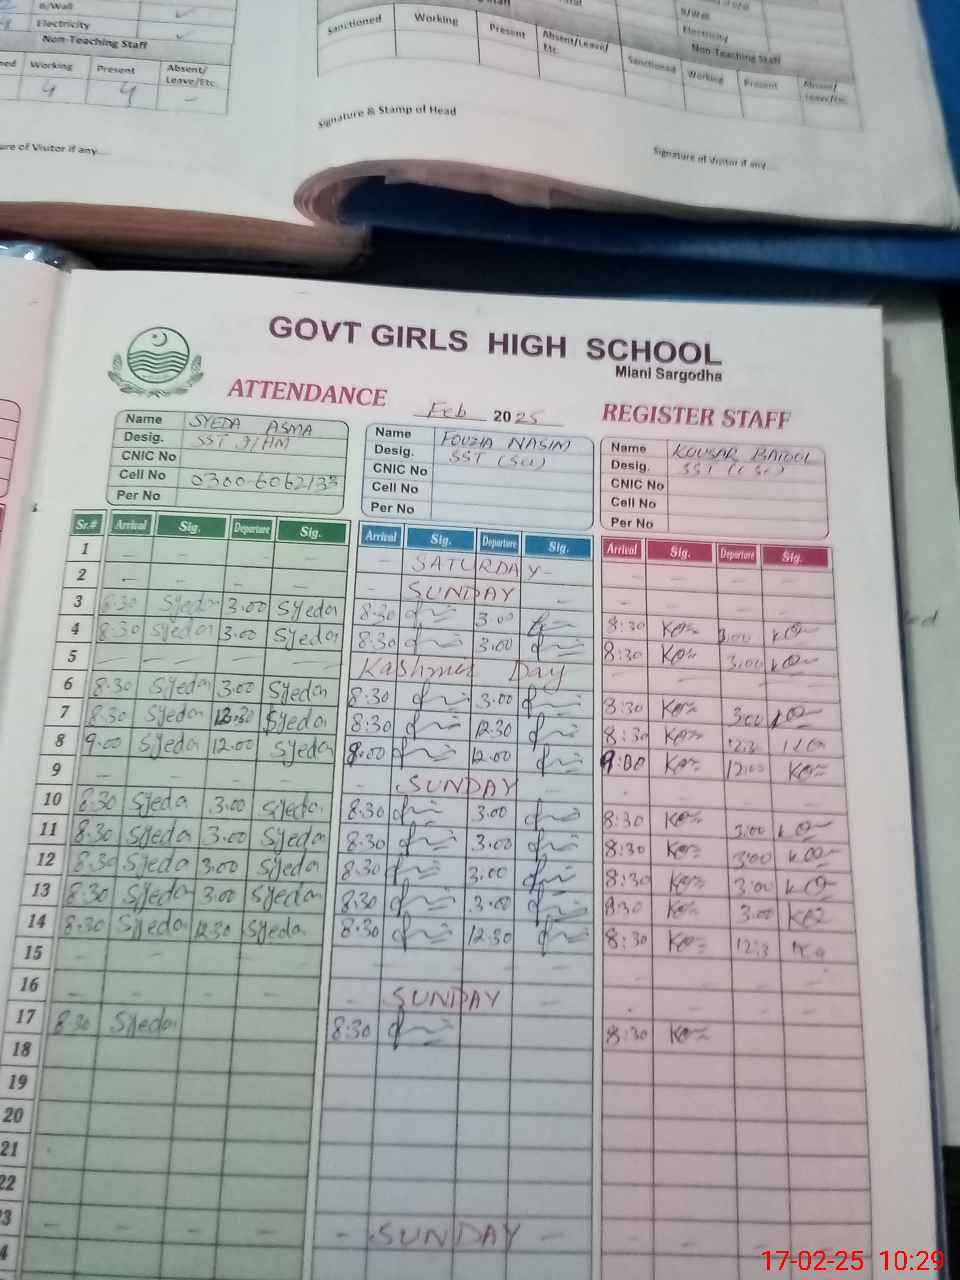 B/Wall
Electricity
Non-Teaching Staff
Working Present Absent/ Leave/Etc.
4 4 -
Sanctioned Working Present Absent/Leave/ Etc.
B/Wall
Electricity
Non-Teaching Staff
Sanctioned Working Present Absent/ Leave/Etc.
Signature & Stamp of Head
Signature of Visitor if any...
GOVT GIRLS HIGH SCHOOL
Miani Sargodha
ATTENDANCE Feb 2025 REGISTER STAFF
Name SYEDA ASMA Name FOUZIA NASIM Name KOUSAR BATOOL
Desig. Desig. SST (Sci) Desig.
CNIC No CNIC No CNIC No
Cell No 0300-6062133 Cell No Cell No
Per No Per No Per No
Sr.# Arrival Sig. Departure Sig. Arrival Sig. Departure Sig. Arrival Sig. Departure Sig.
1 - - - - - SATURDAY - - - - -
2 - - - - - SUNDAY - - - - -
3 8:30 Syeda 3.00 Syeda 8:30 3.00 8:30 3.00
4 8:30 Syeda 3.00 Syeda 8:30 3.00 8:30 3.00
5 - - - - Kashmir Day - - - -
6 8:30 Syeda 3.00 Syeda 8:30 3.00 8:30 3.00
7 8:30 Syeda 12.30 Syeda 8:30 12.30 8:30 12.3
8 9.00 Syeda 12.00 Syeda 12.00 9:00 12.00
9 - - - - - SUNDAY - - - - -
10 8:30 Syeda 3.00 Syeda 8:30 3.00 8:30 3.00
11 8:30 Syeda 3.00 Syeda 8:30 3.00 8:30 3.00
12 8:30 Syeda 3.00 Syeda 8:30 3.00 8:30 3.00
13 8:30 Syeda 3.00 Syeda 8:30 3.00 8:30 3.00
14 8:30 Syeda 12.30 Syeda 8:30 12.30 8:30 12.3
15 - - - - - - - - - - - -
16 - - - - - SUNDAY - - - - -
17 8:30 Syeda 8:30 8:30
18
19
20
21
22
23 - - - - - SUNDAY - - - - -
17-02-25 10:29